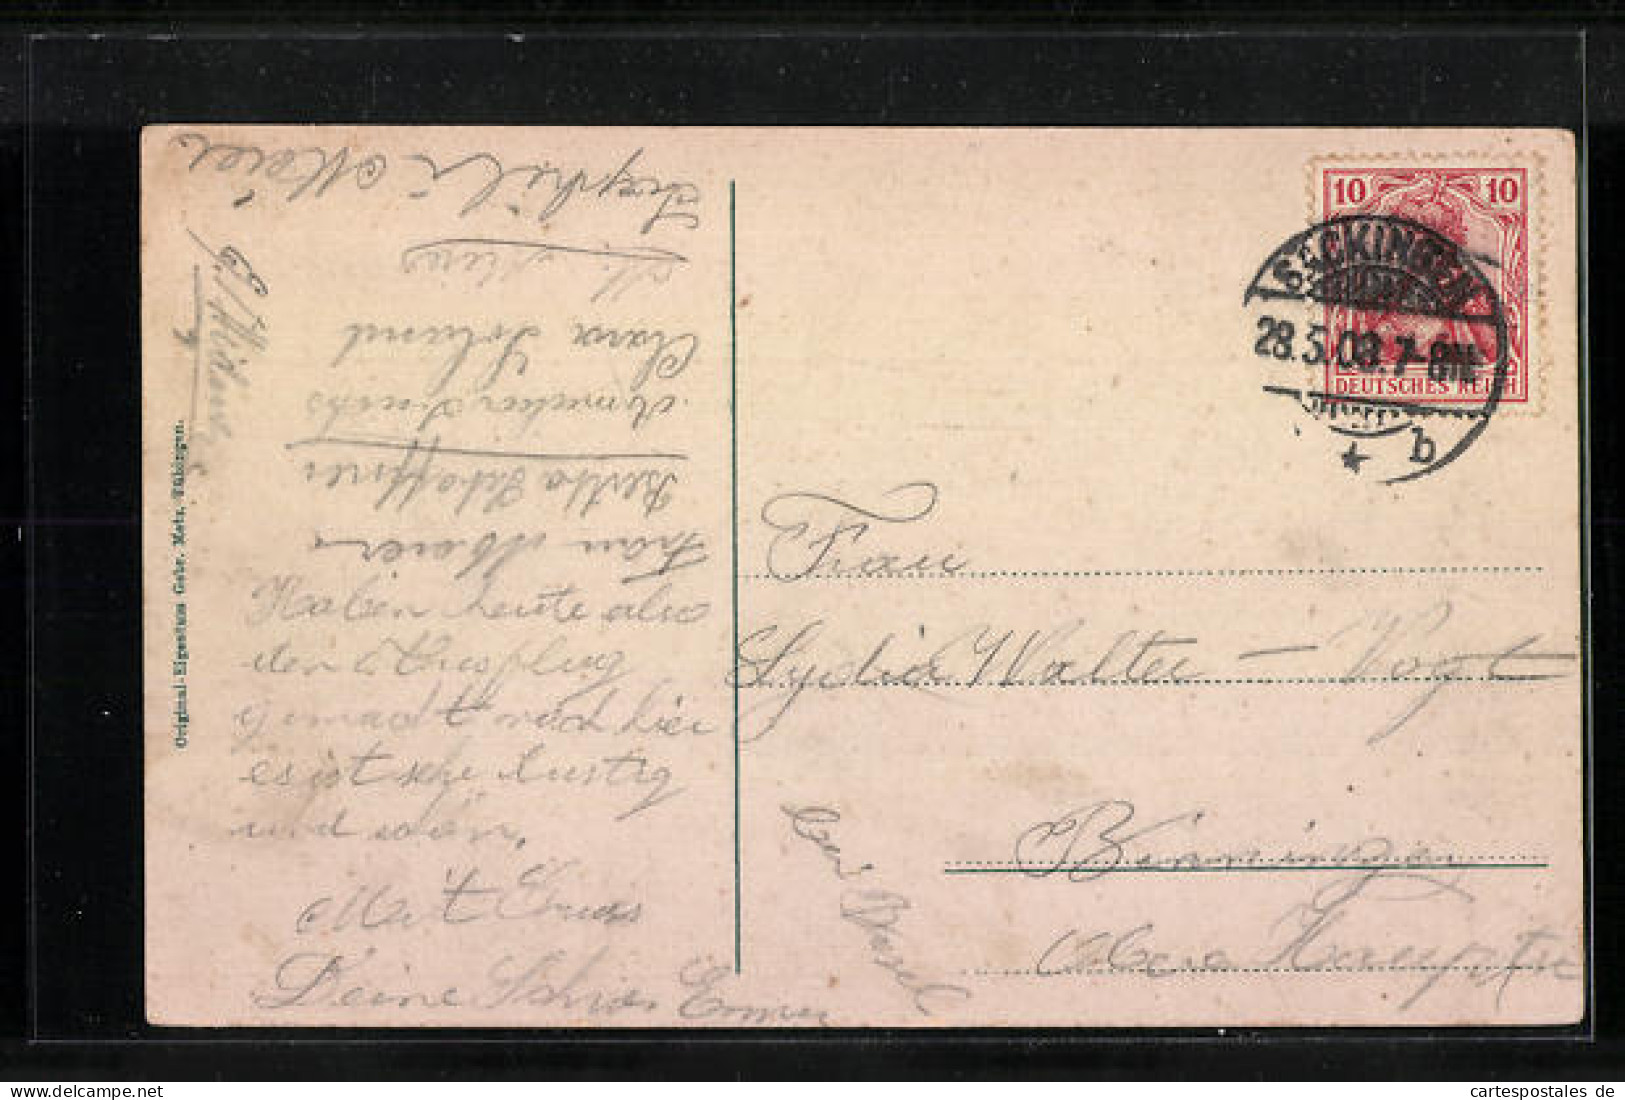 Haben heute also
den Ausflug
gemacht nach hier
es ist sehr lustig
und schön.
Mit Gruss
Deine Emma
Frau Maier
Bertha
Clara
Maier
Original-Eigentum Gebr. Metz, Tübingen.
10 10
DEUTSCHES REICH
SÄCKINGEN
28.5.09.7-8N.
* b
Frau
Lydia Walter - Vogt
Binningen
bei Basel
cartespostales de